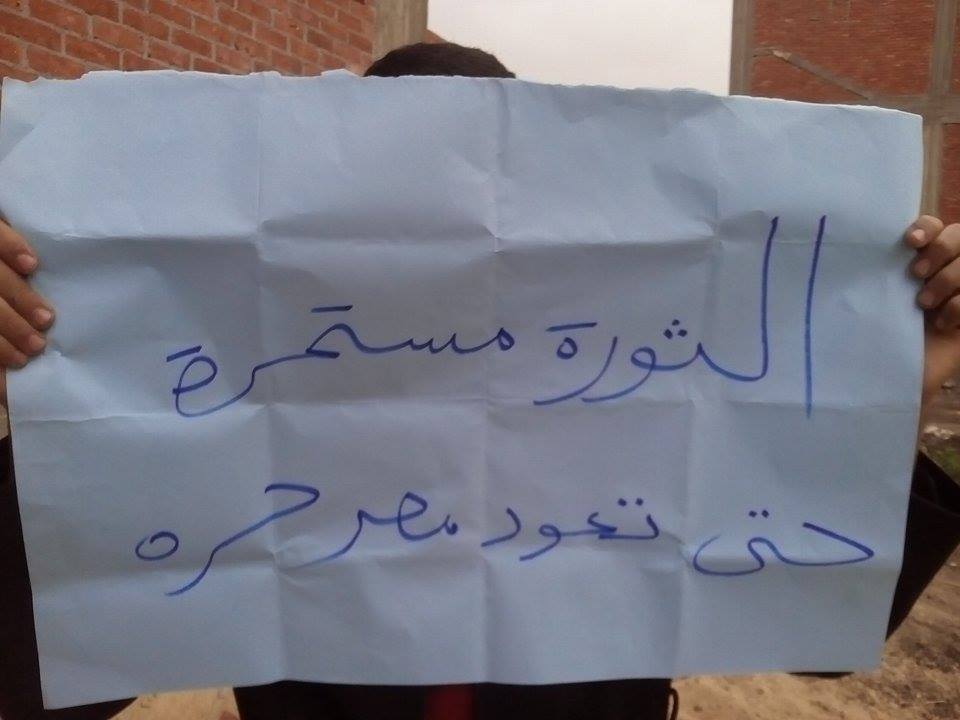 الثورة مستمرة
حتى تعود مصر حره